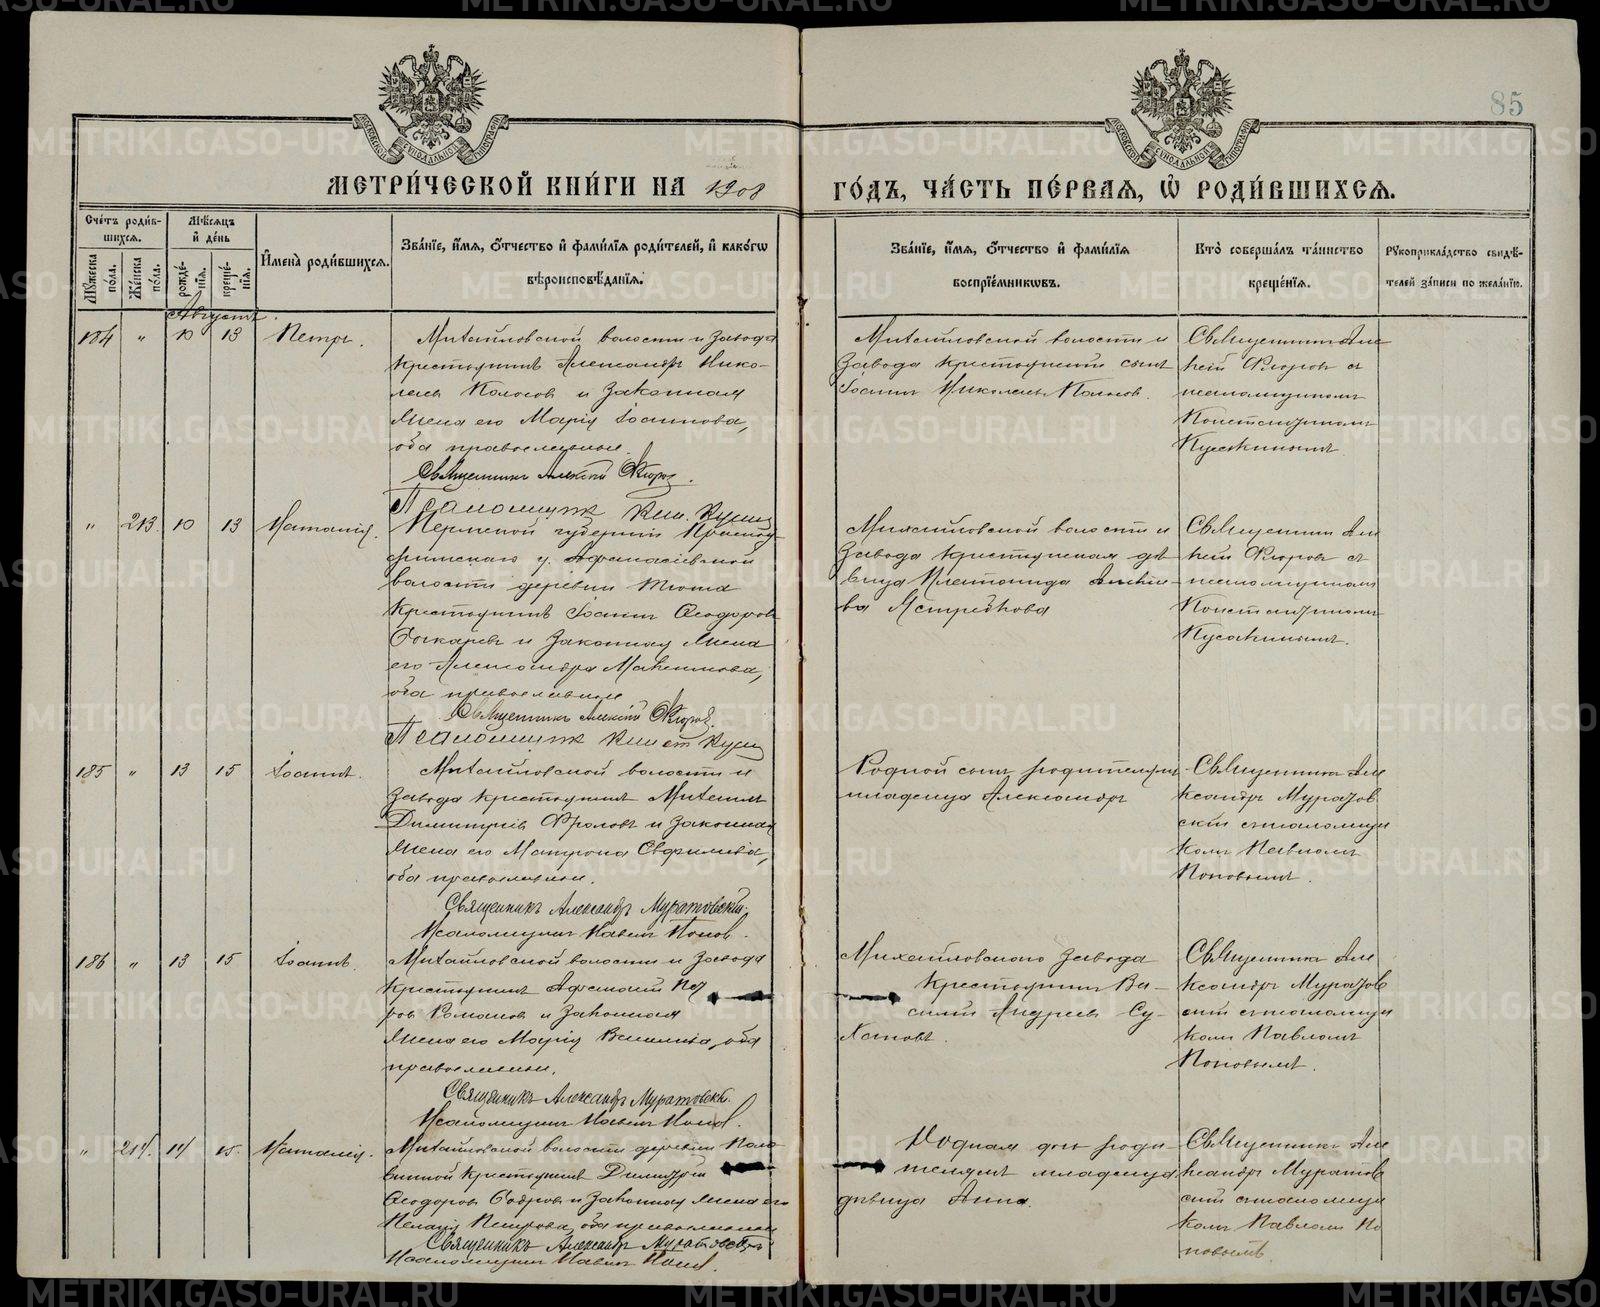 85
МЕТРИ́ЧЕСКОЙ КНИ́ГИ НА 1908 ГО́ДЪ, ЧА́СТЬ ПЕ́РВАѦ, Ѡ҆ РОДИ́ВШИХСѦ.
Сче́тъ роди́в-
шихсѧ.
Мꙋ́жеска по́ла.
Же́нска по́ла.
Мѣ́сѧцъ
и҆ де́нь
рожде́-
нїѧ.
креще́-
нїѧ.
И҆мена̀ роди́вшихсѧ.
Зва́нїе, и҆́мѧ, ѻ҆́тчество и҆ фами́лїѧ роди́телей, и҆ како́гѡ
вѣроисповѣ́данїѧ.
Зва́нїе, и҆́мѧ, ѻ҆́тчество и҆ фами́лїѧ
воспрїе́мникѡвъ.
Кто̀ соверша́лъ та́инство
креще́нїѧ.
Рꙋкоприкла́дство свидѣ́-
телей за́писи по жела́нїю.
Августъ.
184 " 10 13 Петръ.
Михайловской волости и завода
крестьянинъ Александръ Нико-
лаевъ и законная
жена его Марія Іоаннова,
оба православные.
Священникъ Алексій Флоровъ.
Псаломщик Кон. Кусак
Михайловской волости и
завода крестьянскій сынъ
Іоаннъ Николаевъ
Священникъ Але
ксій Флоровъ съ
псаломщикомъ
Константиномъ
Кусакинымъ.
" 213. 10 13 Наталія.
Пермской губерніи Красноу-
фимскаго у. Афанасіевской
волости деревни
крестьянинъ Іоаннъ Ѳеодоровъ
и законная жена
его Александра Максимова,
оба православные
Священникъ Алексій Флоровъ.
Псаломщик
Михайловской волости и
завода крестьянская дѣ-
вица
ва Ястребкова
Священникъ Але
ксій Флоровъ съ
псаломщикомъ
Константиномъ
Кусакинымъ.
185 " 13 15 Іоаннъ.
Михайловской волости и
завода крестьянинъ Михаилъ
Димитріевъ Фроловъ и законная
жена его Матрона
оба православные.
Священникъ Александръ Муратовскій.
Псаломщикъ Павелъ Поповъ.
Родной сынъ родителей
младенца Александръ
Священникъ Але
ксандръ Муратов
скій съ псаломщи
комъ Павломъ
Поповымъ.
186 " 13 15 Іоаннъ.
Михайловской волости и завода
крестьянинъ Афанасій Пет
ровъ Романовъ и законная
жена его Марія оба
православные.
Священникъ Александръ Муратовскій.
Псаломщикъ Павелъ Поповъ.
Михайловскаго завода
крестьянинъ Ва-
силій Андреевъ Су-
хановъ.
Священникъ Але
ксандръ Муратов
скій съ псаломщи
комъ Павломъ
Поповымъ.
" 214. 14 15. Наталія.
Михайловской волости деревни Поло
винной крестьянинъ Димитрій
Ѳеодоровъ и законная жена его
Пелагія Петрова, оба православные
Священникъ Александръ Муратовскій
Псаломщикъ Павелъ Поповъ.
Родная дочь роди-
телей младенца
дѣвица Анна.
Священникъ Але
ксандръ Муратов
скій съ псаломщи
комъ Павломъ По
повымъ
METRIKI.GASO-URAL.RU